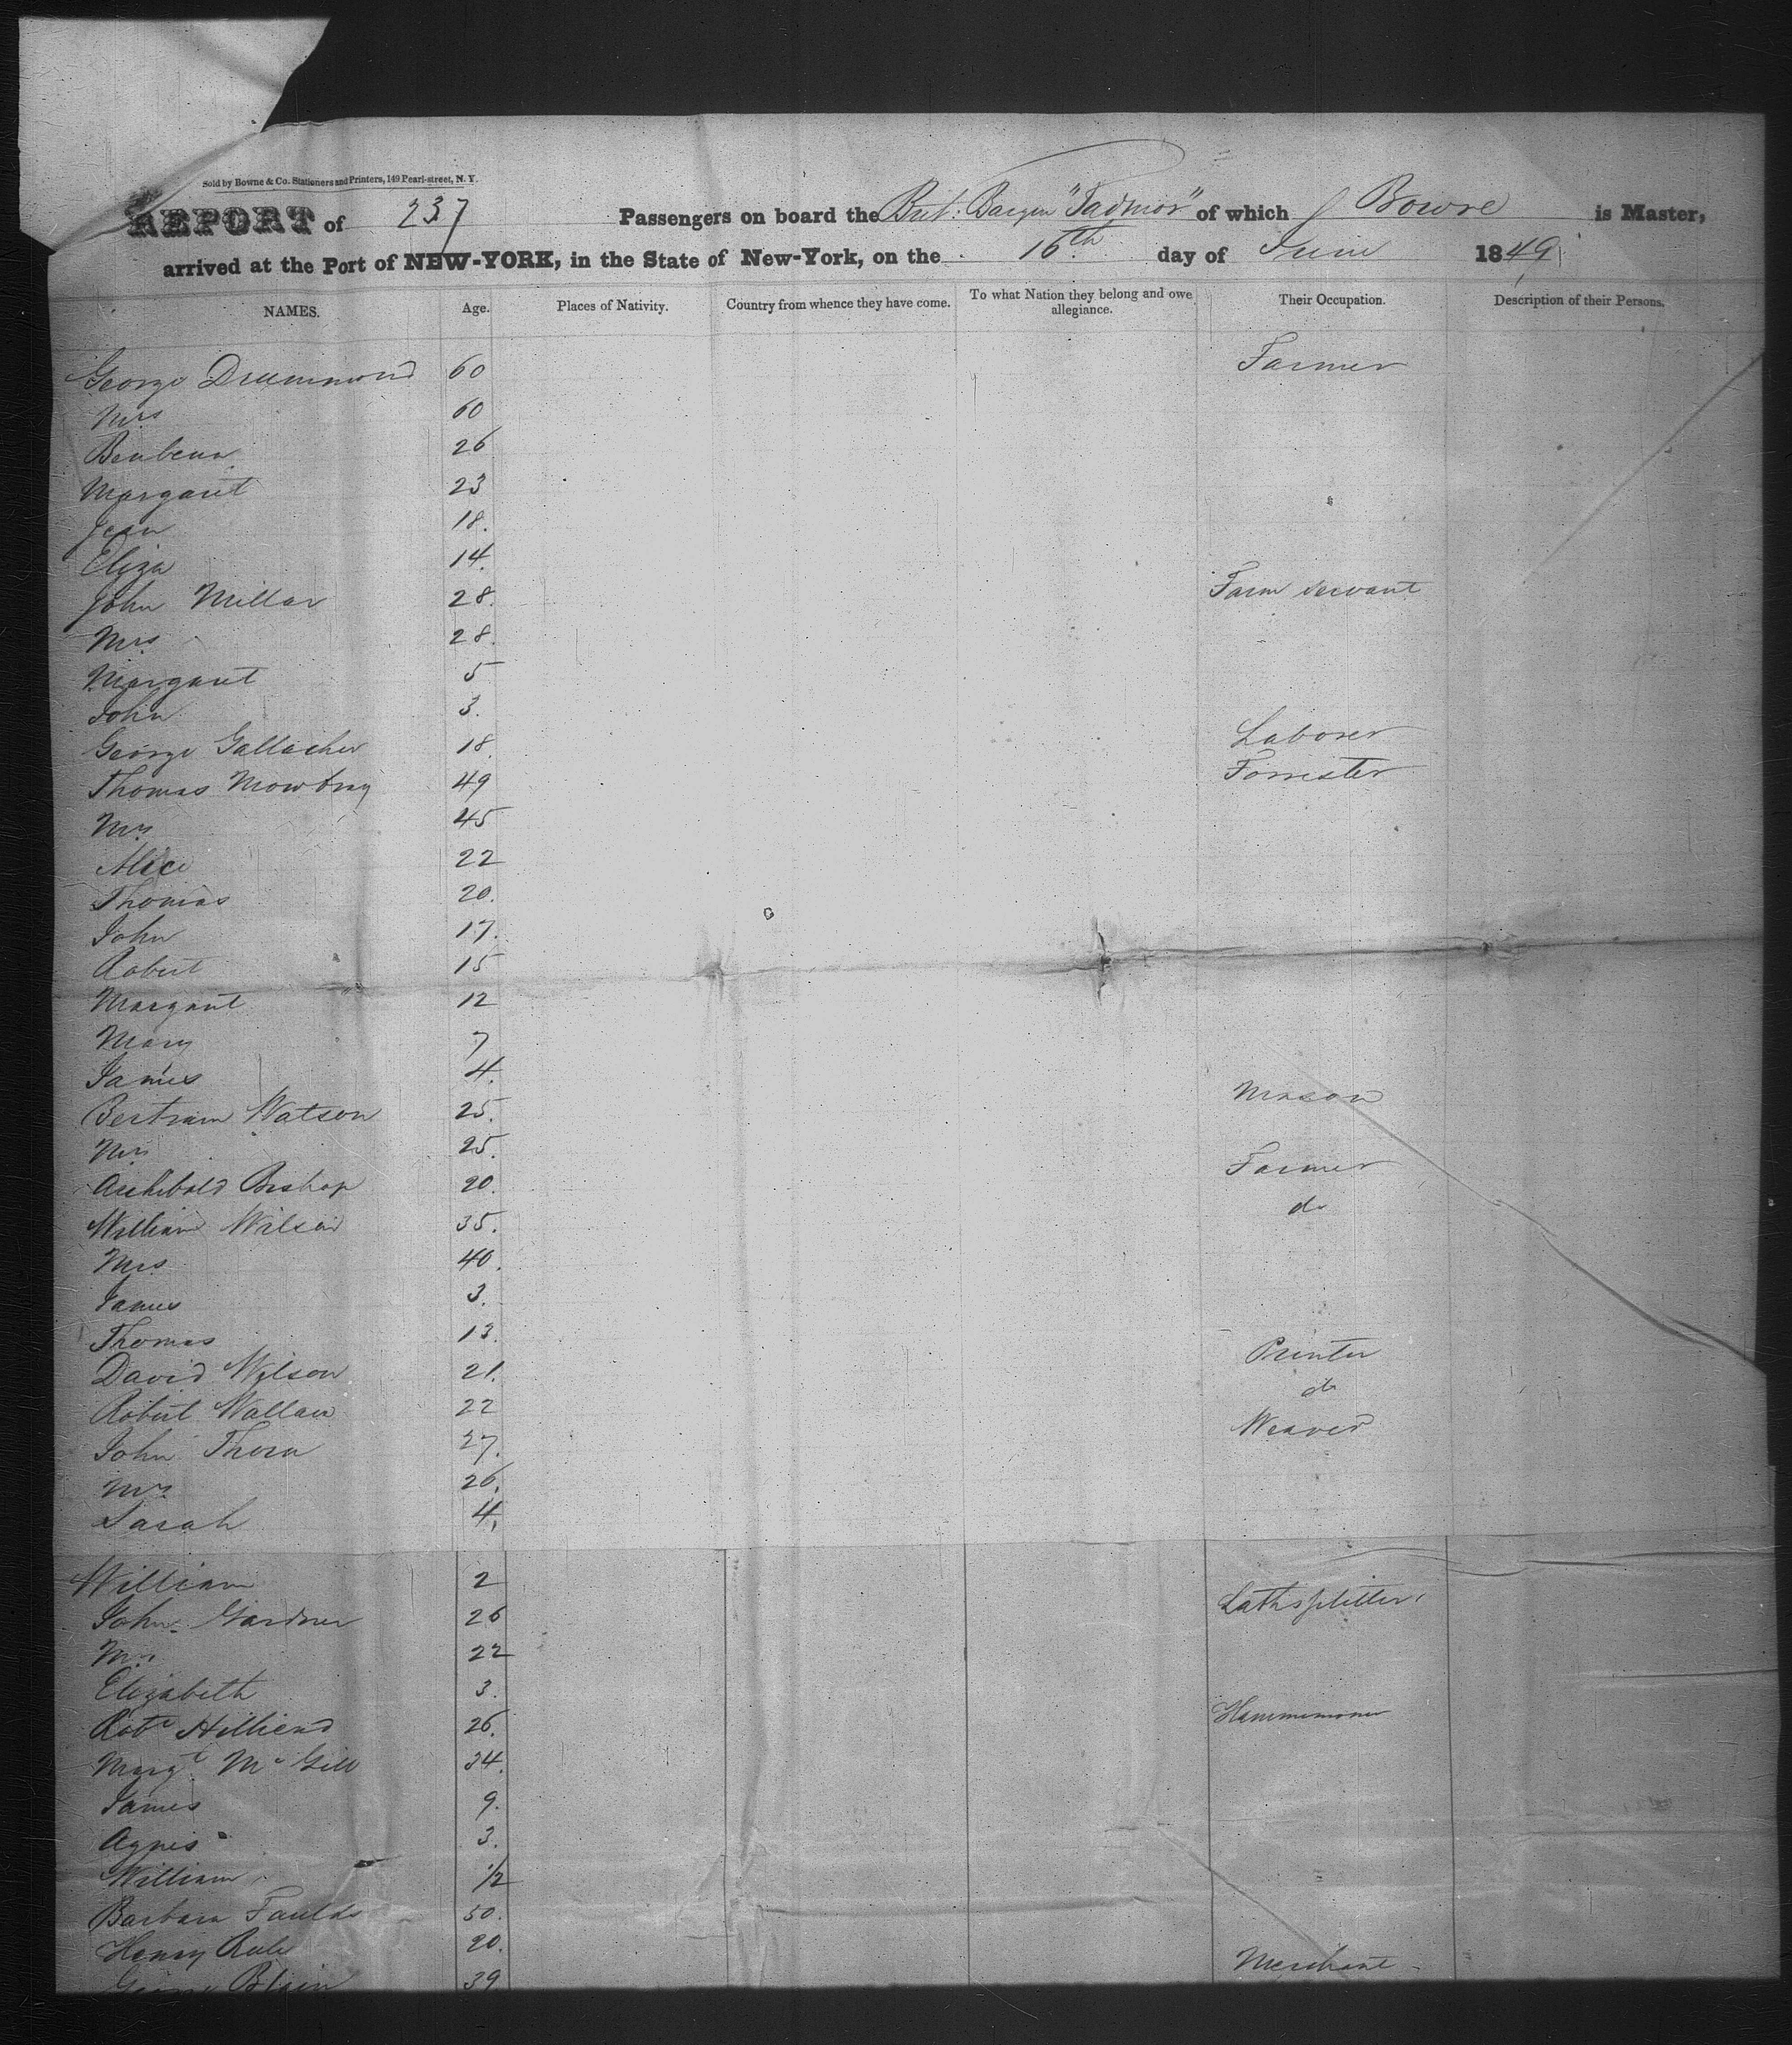 Sold by Bowne & Co. Stationers and Printers, 149 Pearl-street, N. Y.
REPORT of 237 Passengers on board the Brit: Barque "Tadmor" of which J Bowre is Master,
arrived at the Port of NEW-YORK, in the State of New-York, on the 16th day of June 1849
NAMES. Age. Places of Nativity. Country from whence they have come. To what Nation they belong and owe allegiance. Their Occupation. Description of their Persons.
George Drummond 60 Farmer
Mrs 60
26
Margaret 23
Jean 18.
Eliza 14.
John Millar 28. Farm servant
Mrs 28.
Margaret 5
John 3.
George Gallacher 18. Laborer
Thomas Mowbray 49 Forrester
Mrs 45
Alice 22
Thomas 20.
John 17.
Robert 15
Margaret 12
Mary 7
James 4.
Bertram Watson 25. Mason
Mrs 25.
Archibald Bishop 20. Farmer
William Wilson 35. do
Mrs 40.
James 3.
Thomas 13.
David Wilson 21. Printer
Robert Wallace 22 do
John Thom 27. Weaver
Mrs 26.
Sarah 4.
William 2
John Gardner 26 Lathsplitter
Mrs 22
Elizabeth 3.
Robt 26. Hammerman
Margt McGill 34.
James 9.
Agnes 3.
William 1/2
Barbara Faulds 50.
Henry Rule 20.
George Blain 39 Merchant